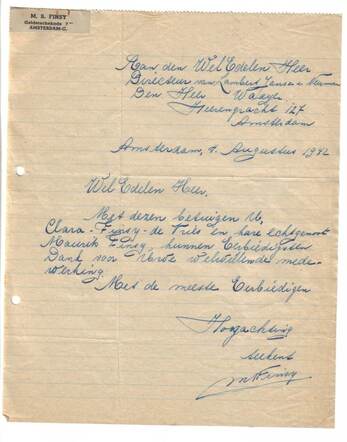 M. S. FINSY
Geldersekade
AMSTERDAM-C.
Aan den WelEdelen Heer
Directeur van Lambert Jansen
Den Heer
Heerengracht 127
Amsterdam
Amsterdam, Augustus 1942
WelEdelen Heer,
Met dezen betuigen U,
Clara - Finsy - de Vries En hare echtgenoot
Maurik Finsy, hunnen Eerbiedigsten
Dank voor Uwe welwillende mede-
werking.
Met de meeste Eerbiedigen
Hoogachting
teekent
Finsy